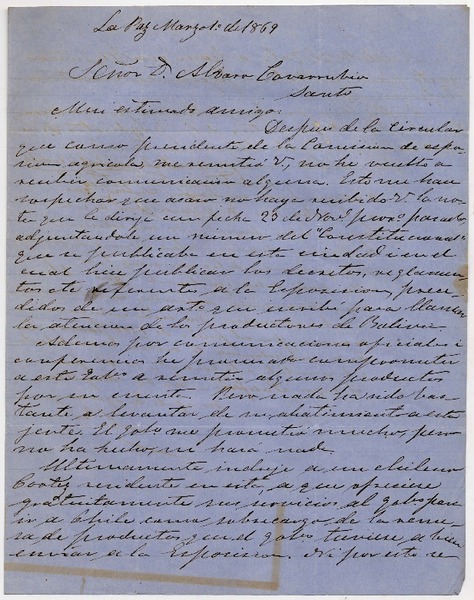 La Paz Marzo 1º de 1869
Señor D. Alvaro Covarrubia
Santo
Mui estimado amigo:
Despues de la circular
que como presidente de la Comision de espo-
sicion agricola me remitió V, no he vuelto a
recibir comunicacion alguna. Esto me hace
sospechar que acaso no haya recibido V. la no-
ta que le dirijí con fecha 23 de Nove. pasado,
adjuntandole un número del "Constitucional"
que se publicaba en esta ciudad i en el
cual hice publicar los decretos, reglamen-
tos etc referente a la Esposicion, prece-
didos de un arto. que escribí para llamar
la atencion de los productores de Bolivia.
Ademas por comunicaciones oficiales i
conferencias he procurado comprometer
a este Gobo. a remitir algunos productos
por su cuenta. Pero nada ha sido bas-
tante a levantar de su abatimiento a esta
jente. El gobo. me prometió mucho, pero
no ha hecho, ni hará nada.
Ultimamente induje a un chileno
Cortez residente en esta, a que ofreciese
gratuitamente sus servicios al gobo. para
ir a Chile como sobrecargo de la reme-
sa de productos que el gobo. tuviese a bien
enviar a la Esposicion. Ni por esto se